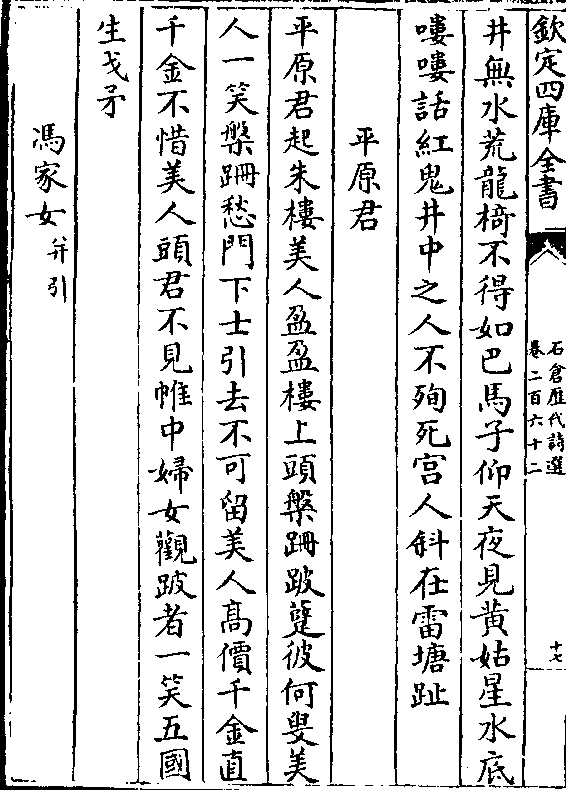 欽定四庫全書
石倉歴代詩選
卷二百六十二
十七
井無水荒龍𣗳不得如巴馬子仰天夜見黄姑星水底
嘍嘍話紅鬼井中之人不殉死宫人斜在雷塘趾
平原君
平原君起朱樓美人盈盈樓上頭槃跚跛躄彼何叟美
人一笑槃跚愁門下士引去不可留美人髙價千金直
千金不惜美人頭君不見帷中婦女觀跛者一笑五國
生戈矛
馮家女并引